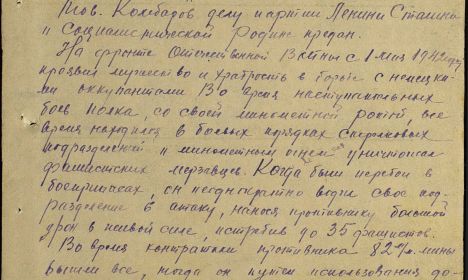 Тов. Кохбаров делу партии Ленина Сталина
и Социалистической Родине предан.
На фронте Отечественной Войны с 1 мая 1942 года
проявил мужество и храбрость в борьбе с немецки-
ми оккупантами во время наступательных
боев полка, со своей минометной ротой, все
время находился в боевых порядках стрелковых
подразделений и минометным огнем уничтожал
фашистских мерзавцев. Когда были перебои в
боеприпасах, он неоднократно водил свое под-
разделение в атаку, нанося противнику большой
урон в живой силе, истребив до 35 фашистов.
Во время контратаки противника 82 м/м. мины
вышли все, тогда он путем использования до-